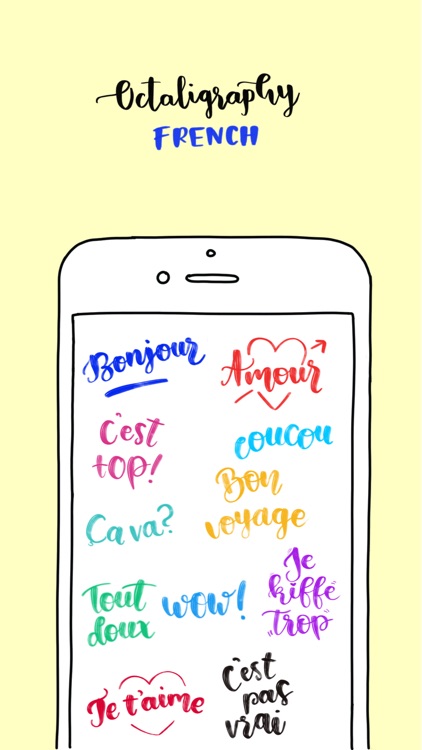 Octaligraphy
FRENCH
Bonjour
Amour
C'est
top!
coucou
Bon
voyage
Ça va?
Tout
doux
wow!
Je
kiffe
trop
Je t'aime
C'est
pas
vrai